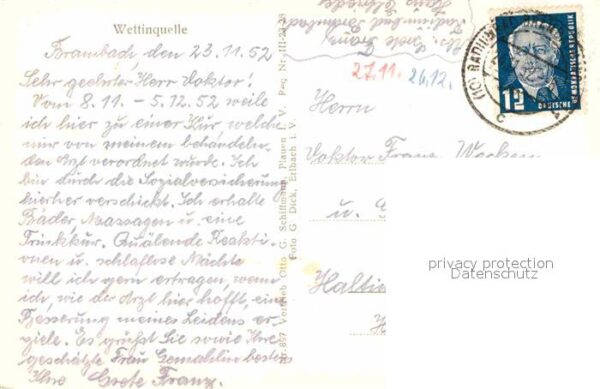 Wettinquelle
Brambach den 23.11.52
Sehr geehrter Herr Doktor!
Vom 8.11 - 5.12.52 weile
ich hier zu einer Kur, welche
mir von meinem behandeln-
den Arzt verordnet wurde. Ich
bin durch die Sozialversicherung
hierher verschickt. Ich erhalte
Bäder, Massagen u. eine
Trinkkur. Quälende Reakti-
onen u. schlaflose Nächte
will ich gern ertragen, wenn
ich, wie der Arzt hier hofft, eine
Besserung meines Leidens er-
ziele. Es grüßt Sie sowie Ihre
geschätzte Frau Gemahlin bestens
Ihre Grete Franz.
Vertrieb Otto G. Schiffmann, Plauen i. V.
Foto G. Dick, Erlbach i. V.
Grete Franz
27.11. 26.12.
12
DEUTSCHE
DEMOKRATISCHE REPUBLIK
(10) RADIUMBAD BRAMBACH
Herrn
Doktor Franz
u.
privacy protection
Datenschutz